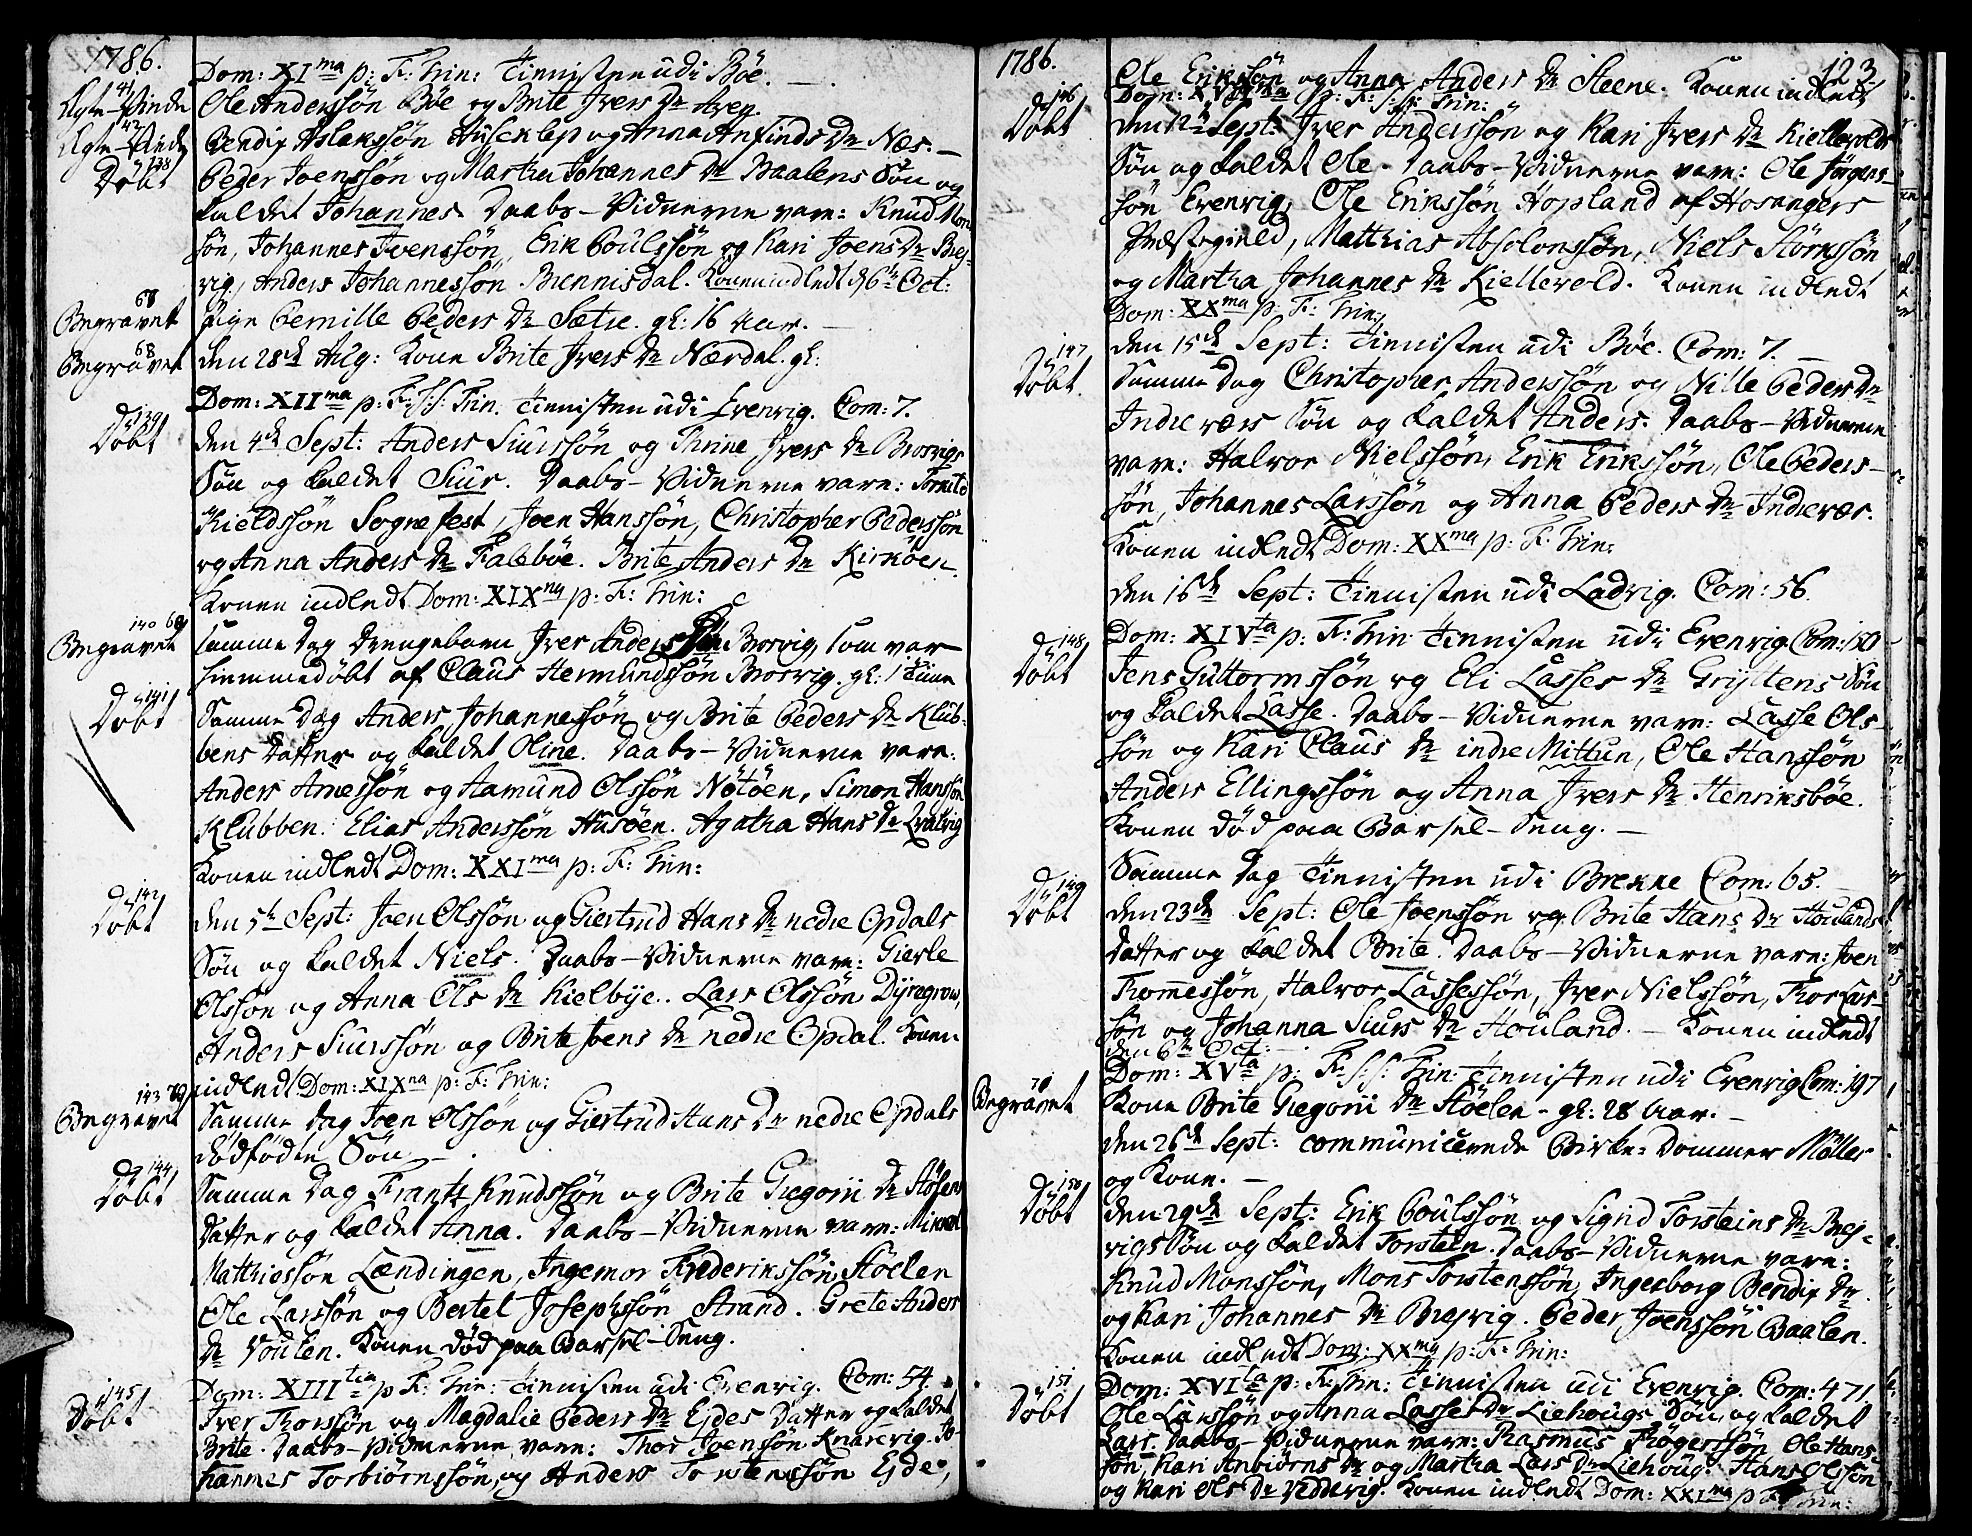 1786.
Dom: XI ma p: F: Trin: Tienisten udi Böe. —
41
Ole Anderssön Böe og Brite Ivers Dr
42
Bendix Aslakssön Huseklep og Anna Anfinds Dr Næs. —
138
Döbt
Peder Joenssön og Martha Johannes Dr Baalens Sön og
kaldet Johannes. Daabs-Vidnerne vare: Knud Mons
sön, Johannes Ivenssön, Erik Poulssön og Kari Joens Dr Brej-
vig, Anders Johannessön Brennisdal. Konen indledt d 6te Oct:
68
Begravet
Pige Pernille Peders Dr Sætre. gl: 16 Aar. —
68
Begravet
den 28de Aug: Kone Brite Ivers Dr Nærdal. gl:
Dom: XII ma p: F: S: S: Trin. Tienisten udi Evenvig. Com: 7.
139
Döbt
den 4de Sept: Anders Siurssön og Thrine Ivers Dr Brosvigs
Sön og kaldet Siur. Daabs-Vidnerne vare:
Kieldssön Sognefest, Joen Hanssön, Christopher Pederssön
og Anna Anders Dr Faleböe. Brite Anders Dr Kirköen.
Konen indledt Dom: XIX na p: F: Trin:
140 69
Begravet
Samme Dag Drengebarn Iver Anders Sön Brosvig, som var
hiemmedöbt af Claus Hermundssön Brosvig. gl: 1
141
Döbt
Samme Dag Anders Johannessön og Brite Peders Dr Klub-
bens Datter og kaldet Oline. Daabs-Vidnerne vare:
Anders Arnessön og Aamund Olssön Nötöen, Simon Hanssön
Klubben. Elias Anderssön Husöen. Agatha Hans Dr
Konen indledt Dom: XXI ma p: F: Trin:
142
Döbt
den 5te Sept: Joen Olssön og Giertrud Hans Dr nedre Opdals
Sön og kaldet Niels. Daabs-Vidnerne vare: Gierle
Olssön og Anna Ols Dr Kielbye. Lars Olssön Dyregrov,
Anders Siurssön og Brite Joens Dr nedre Opdal. Konen
indledt Dom: XIX na p: F: Trin:
143 70
Begravet
Samme Dag Joen Olssön og Giertrud Hans Dr nedre Opdals
dödfödte Sön —
144
Döbt
Samme Dag Frantz Knudssön og Brite Gregorii Dr Stöhlens
Datter og kaldet Anna. Daabs-Vidnerne vare: Mikkel
Matthiessön Lændingen, Ingemor Frideriksssön Stöelen
Ole Larssön og Bertel Josephssön Strand. Grete Anders
Dr Voulen. Konen död paa Barsel-Seng.
Dom: XIII tia p: F: Trin: Tienisten udi Evenvig. Com: 54.
145
Döbt
Iver Thorssön og Magdalie Peders Dr Ejdes Datter og kaldet
Brite. Daabs-Vidnerne vare: Thor Joenssön Knarrevig. Jo-
hannes Torbiörnssön og Anders Torstenssön Ejde,
1786.
123.
Ole Erikssön og Anna Anders Dr Steene. Konen indledt
Dom: XVI p: F: S: S: Trin:
146
Döbt
den 12te Sept: Iver Anderssön og Kari Ivers Dr Kiellevolds
Sön og kaldet Ole. Daabs-Vidnerne vare: Ole Jörgens-
sön Evenvig, Ole Erikssön Hopland af Hosangers
Præstegield, Matthias Absolonssön, Niels Störkssön
og Martha Johannes Dr Kiellevold. Konen indledt
Dom: XX ma p: F: Trin:
den 15de Sept: Tienisten udi Böe. Com: 7. —
147
Döbt.
Samme Dag Christopher Anderssön og Nille Peders Dr
Indreværs Sön og kaldet Anders. Daabs-Vidnerne
vare: Halvor Nielssön, Erik Erikssön, Ole Peders-
sön, Johannes Larssön og Anna Peders Dr Indrevær.
Konen indledt Dom: XX ma p: F: Trin:
den 16de Sept: Tienisten udi Ladvig. Com: 56.
Dom: XIV ta p: F: Trin Tienisten udi Evenvig Com: 150 —
148
Döbt
Jens Guttormssön og Eli Lasses Dr Gryttens Sön
og kaldet Lasse. Daabs-Vidnerne vare: Lasse Ols-
sön og Kari Claus Dr indre Mittun, Ole Hanssön
Anders Ellingssön og Anna Ivers Dr Henriksböe.
Konen död paa Barsel-Seng. —
Samme Dag Tienisten udi Brekke Com: 65. —
149
Döbt
den 23de Sept: Ole Joenssön og Brite Hans Dr Houlands
Datter og kaldet Brite. Daabs-Vidnerne vare: Joen
Thomessön, Halvor Lassessön, Iver Nielssön, Thor Lars-
sön og Johanna Siurs Dr Houland. — Konen indledt
den 6te Oct: —
Dom: XV ta p: F: S: S: Trin: Tienisten udi Evenvig Com: 197
70
Begravet
Kone Brite Gregorii Dr Stöelen — gl: 28 Aar. —
den 26de Sept: communicerede Birke-Dommer Möller
og Kone. —
150
Döbt
den 29de Sept: Erik Poulssön og Sigrid Torsteins Dr Brej-
vigs Sön og kaldet Torstein. Daabs-Vidnerne vare:
Knud Monssön, Mons Torstenssön, Ingeborg Bendix Dr
og Kari Johannes Dr Brejvig. Peder Joenssön Baalen.
Konen indledt Dom: XX ma p: F: Trin:
Dom: XVI ta p: F: Trin: Tienisten udi Evenvig. Com: 471
151
Döbt
Ole Larssön og Anna Lasses Dr Liehougs Sön og kaldet
Lars. Daabs-Vidnerne vare: Rasmus Rögerssön Ole Hans
sön, Kari Anbiörns Dr og Martha Lars Dr Liehoug. Hans Olssön
og Kari Ols Dr Vadderig. Konen indledt Dom: XXI ma p: F: Trin: